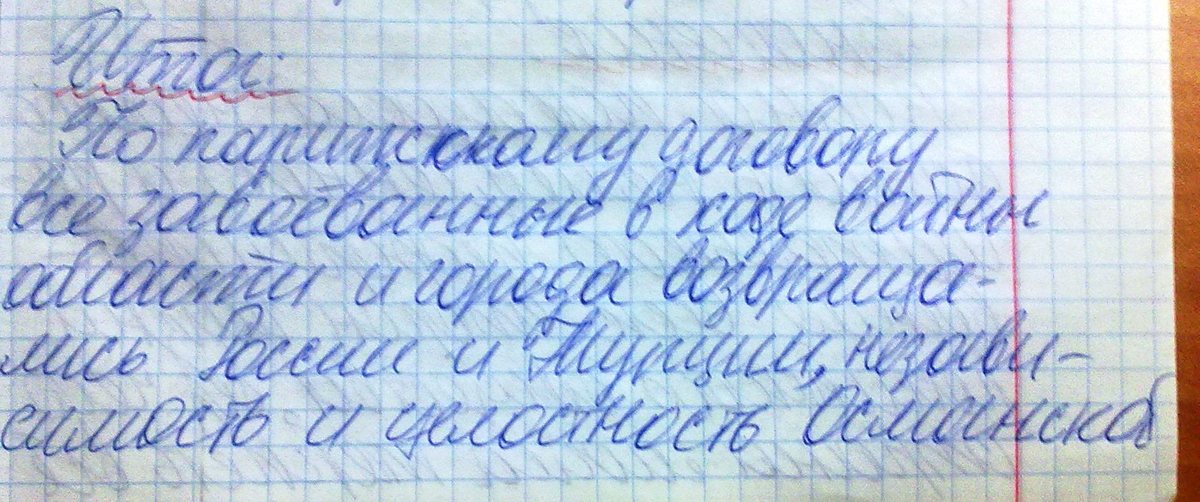 Итог:
По парижскому договору
все завоёванные в ходе войны
области и города возвраща-
лись России и Турции, незави-
симость и целостность Османской